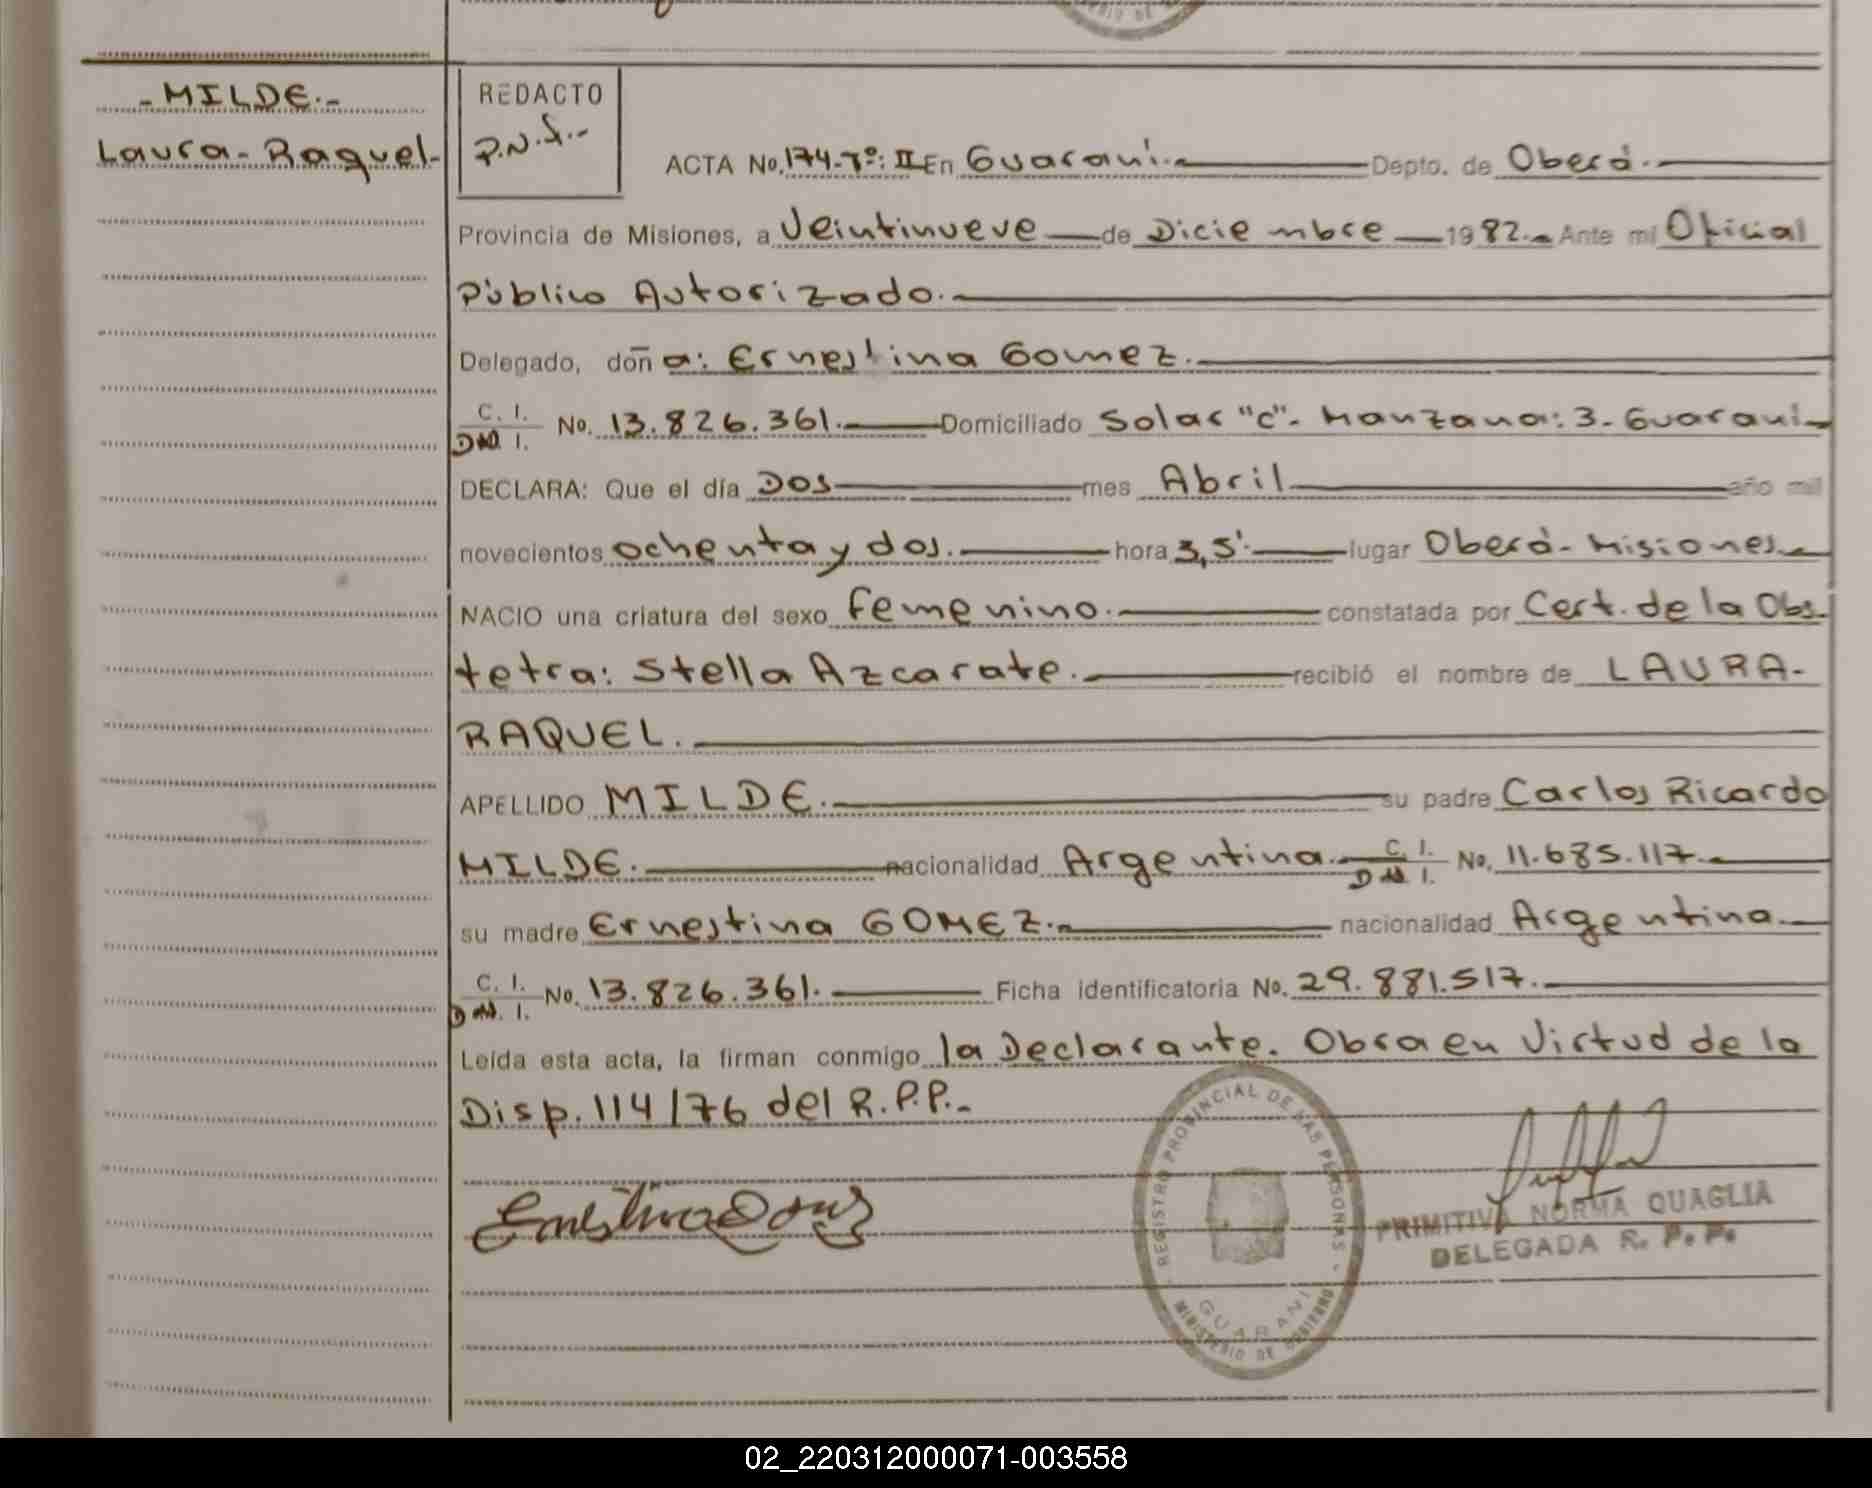 - MILDE.-
Laura - Raquel-
REDACTO
P.N.
ACTA No. 174-Tº: II En Guaraní.- Depto. de Oberá.-
Provincia de Misiones, a Veintinueve de Diciembre 1982.- Ante mi Oficial
Público Autorizado.-
Delegado, doña: Ernestina Gomez.-
C. I.
D N I. No. 13.826.361.- Domiciliado Solar "C"- Manzana: 3- Guaraní-
DECLARA: Que el día Dos mes Abril año mil
novecientos ochenta y dos.- hora 3,5'.- lugar Oberá- Misiones.-
NACIO una criatura del sexo femenino.- constatada por Cert. de la Obs-
tetra: Stella Azcarate.- recibió el nombre de LAURA-
RAQUEL.-
APELLIDO MILDE.- su padre Carlos Ricardo
MILDE.- nacionalidad Argentina.- C. I.
D N I. No. 11.685.117.-
su madre Ernestina GOMEZ.- nacionalidad Argentina.-
C. I.
D N I. No. 13.826.361.- Ficha identificatoria No. 29.881.517.-
Leída esta acta, la firman conmigo la Declarante. Obra en Virtud de la
Disp. 114/76 del R.P.P.-
REGISTRO PROVINCIAL DE LAS PERSONAS
GUARANI
MINISTERIO DE GOBIERNO
PRIMITIVA NORMA QUAGLIA
DELEGADA R. P. P.
02_220312000071-003558